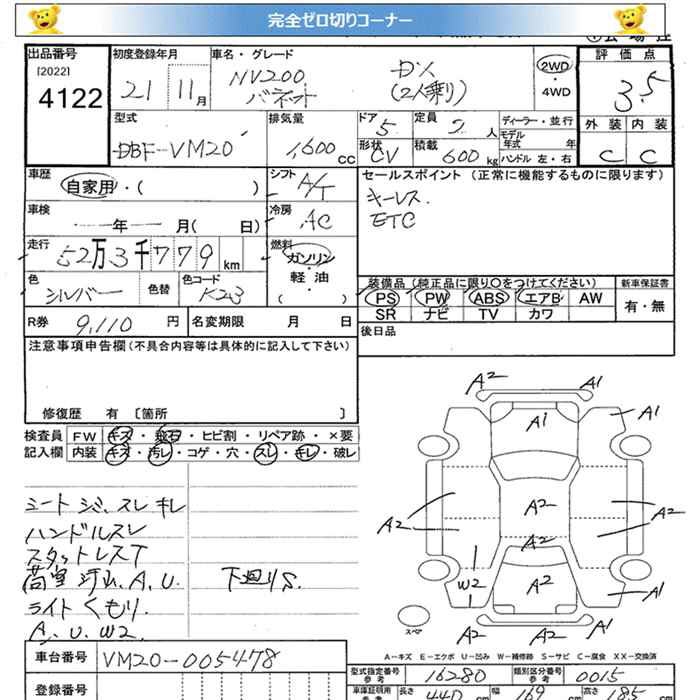 完全ゼロ切りコーナー
出品番号
[2022]
4122
初度登録年月
21 11月
車名・グレード
NV200
バネット
DX
(2人乗り)
2WD
・
4WD
評価点
3.5
外装 内装
C C
型式
DBF-VM20
排気量
1,600cc
ドア
5
定員
2人
形状
CV
積載
600kg
ディーラー・並行
モデル
年式 年
ハンドル 左・右
車歴
自家用・( )
シフト
A/T
車検
年 月( 日)
冷房
AC
走行
52万3千779km
燃料
ガソリン
・
軽・油
( )
色
シルバー
色替
色コード
K23
セールスポイント(正常に機能するものに限ります)
キーレス
ETC
装備品(純正品に限り〇をつけてください)
PS PW ABS エアB AW
SR ナビ TV カワ
新車保証書
有・無
R券 9,110円
名変期限 月 日
後日品
注意事項申告欄(不具合内容等は具体的に記入して下さい)
修復歴 有 [箇所 ]
検査員
記入欄
FW キズ・飛石・ヒビ割・リペア跡・×要
内装 キズ・汚レ・コゲ・穴・スレ・キレ・破レ
シート シミ、スレ キレ
ハンドルスレ
スタットレスT
荷室 汚レ、A、U.
下廻りS.
ライト くもり.
A、U、W2
A2 A1
A1 A1
A2 A2 A2
A2
W2 A2 A1
A2 A2 A2
スペア
A-キズ E-エクボ U-凹み W-補修跡 S-サビ C-腐食 XX-交換済
車台番号
VM20-005478
登録番号
型式指定番号
参考
16280
類別区分番号
参考
0015
車庫証明用
参考
長さ 440cm
幅 169cm
高さ 185cm